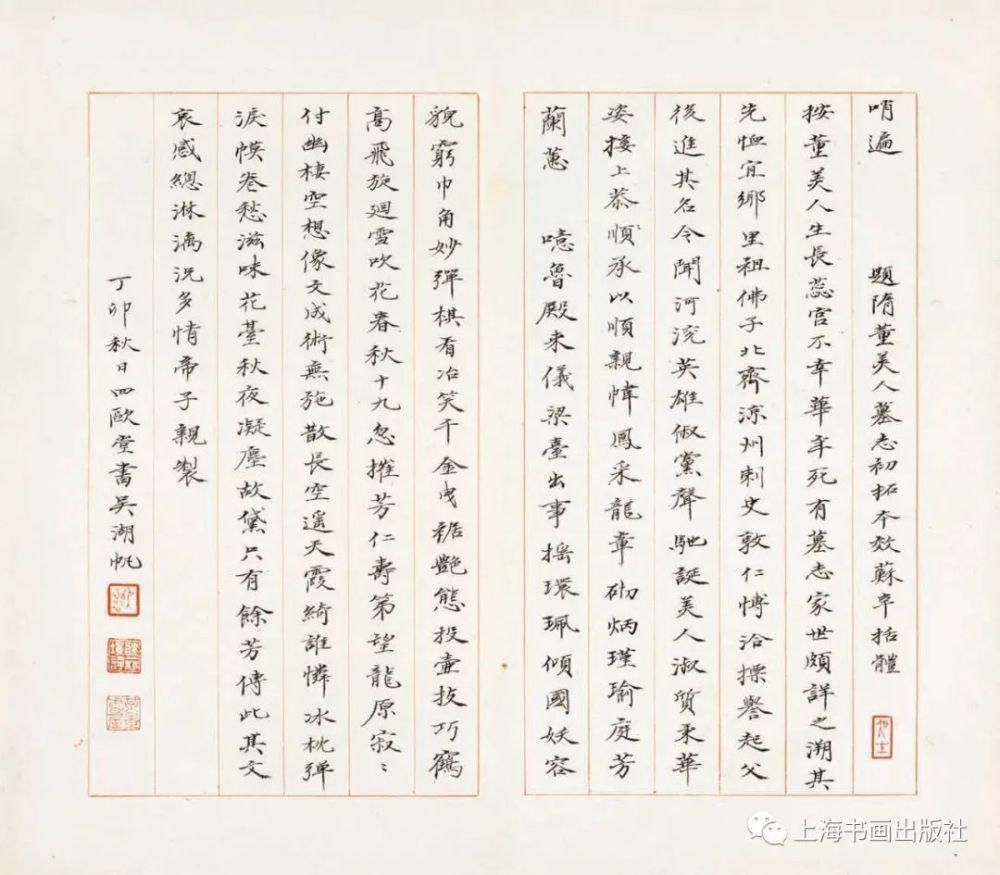 哨遍 題隋董美人墓志初拓本效蘇辛括體
按董美人生長蕊宮不幸華年死有墓志家世頗詳之溯其
先恤宜鄉里祖佛子北齊涼州刺史敦仁博洽摽譽起父
後進其名今聞河浣英雄俶黨聲馳誕美人淑質柔華
姿接上恭順承以順親幃鳳采龍章砌炳瑾瑜庭芳
蘭蕙 噫魯殿來儀梁臺出事搖環珮傾國妖容
貌窮巾角妙彈棋看冶笑千金曳裾艷態投壷技巧鶴
高飛旋廻雪吹花春秋十九忽摧芳仁壽第望龍原寂〻
付幽棲空想像文成術無施散長空遥天霞綺誰憐冰枕彈
淚幙卷愁滋味花臺秋夜凝塵故黛只有餘芳傳此其文
哀感總淋漓況多情帝子親製
丁卯秋日四歐堂書吳湖帆
上海书画出版社